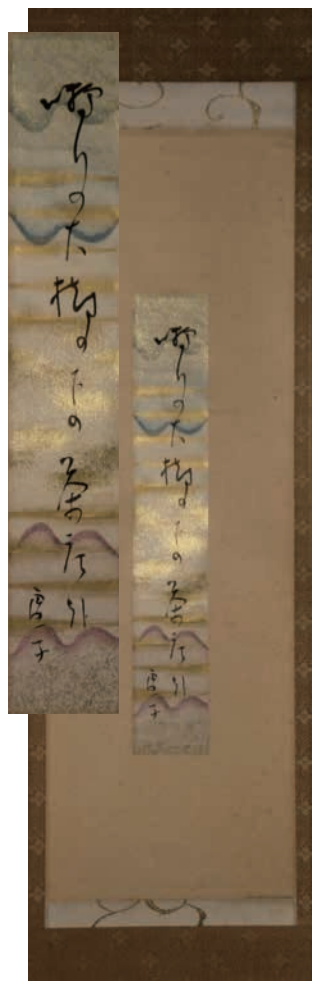 囀りの大樹の下の茶店
虚子
囀りの大樹の下の茶店
虚子